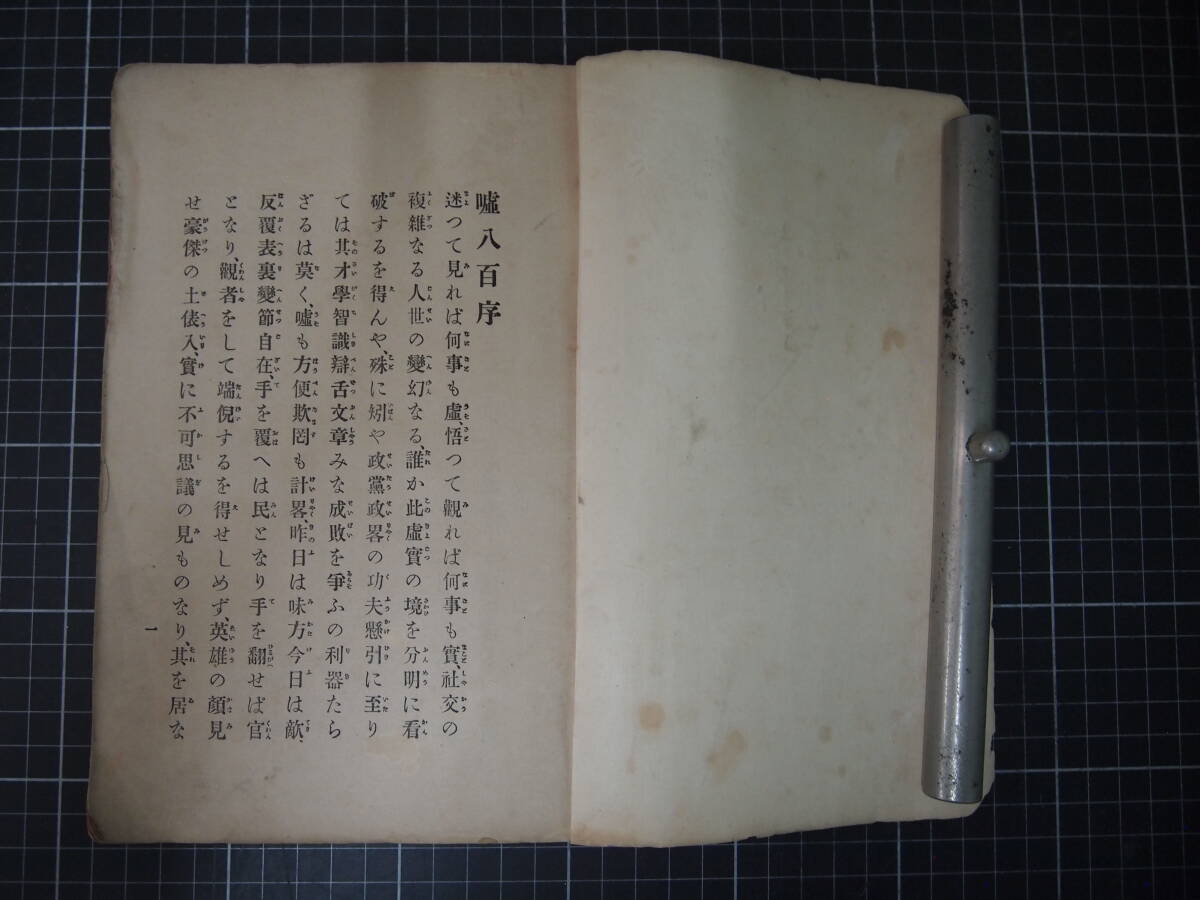 嘘八百序
迷つて見れば何事も虛、悟つて觀れば何事も實、社交の
複雜なる人世の變幻なる、誰か此虛實の境を分明に看
破するを得んや、殊に矧や政黨政畧の功夫懸引に至り
ては其才學智識辯舌文章みな成敗を爭ふの利器たら
ざるは莫く、嘘も方便欺罔も計畧、昨日は味方今日は敵、
反覆表裏變節自在、手を覆へは民となり手を翻せば官
となり、觀者をして端倪するを得せしめず、英雄の顏見
せ豪傑の土俵入、實に不可思議の見ものなり、其を居な
一